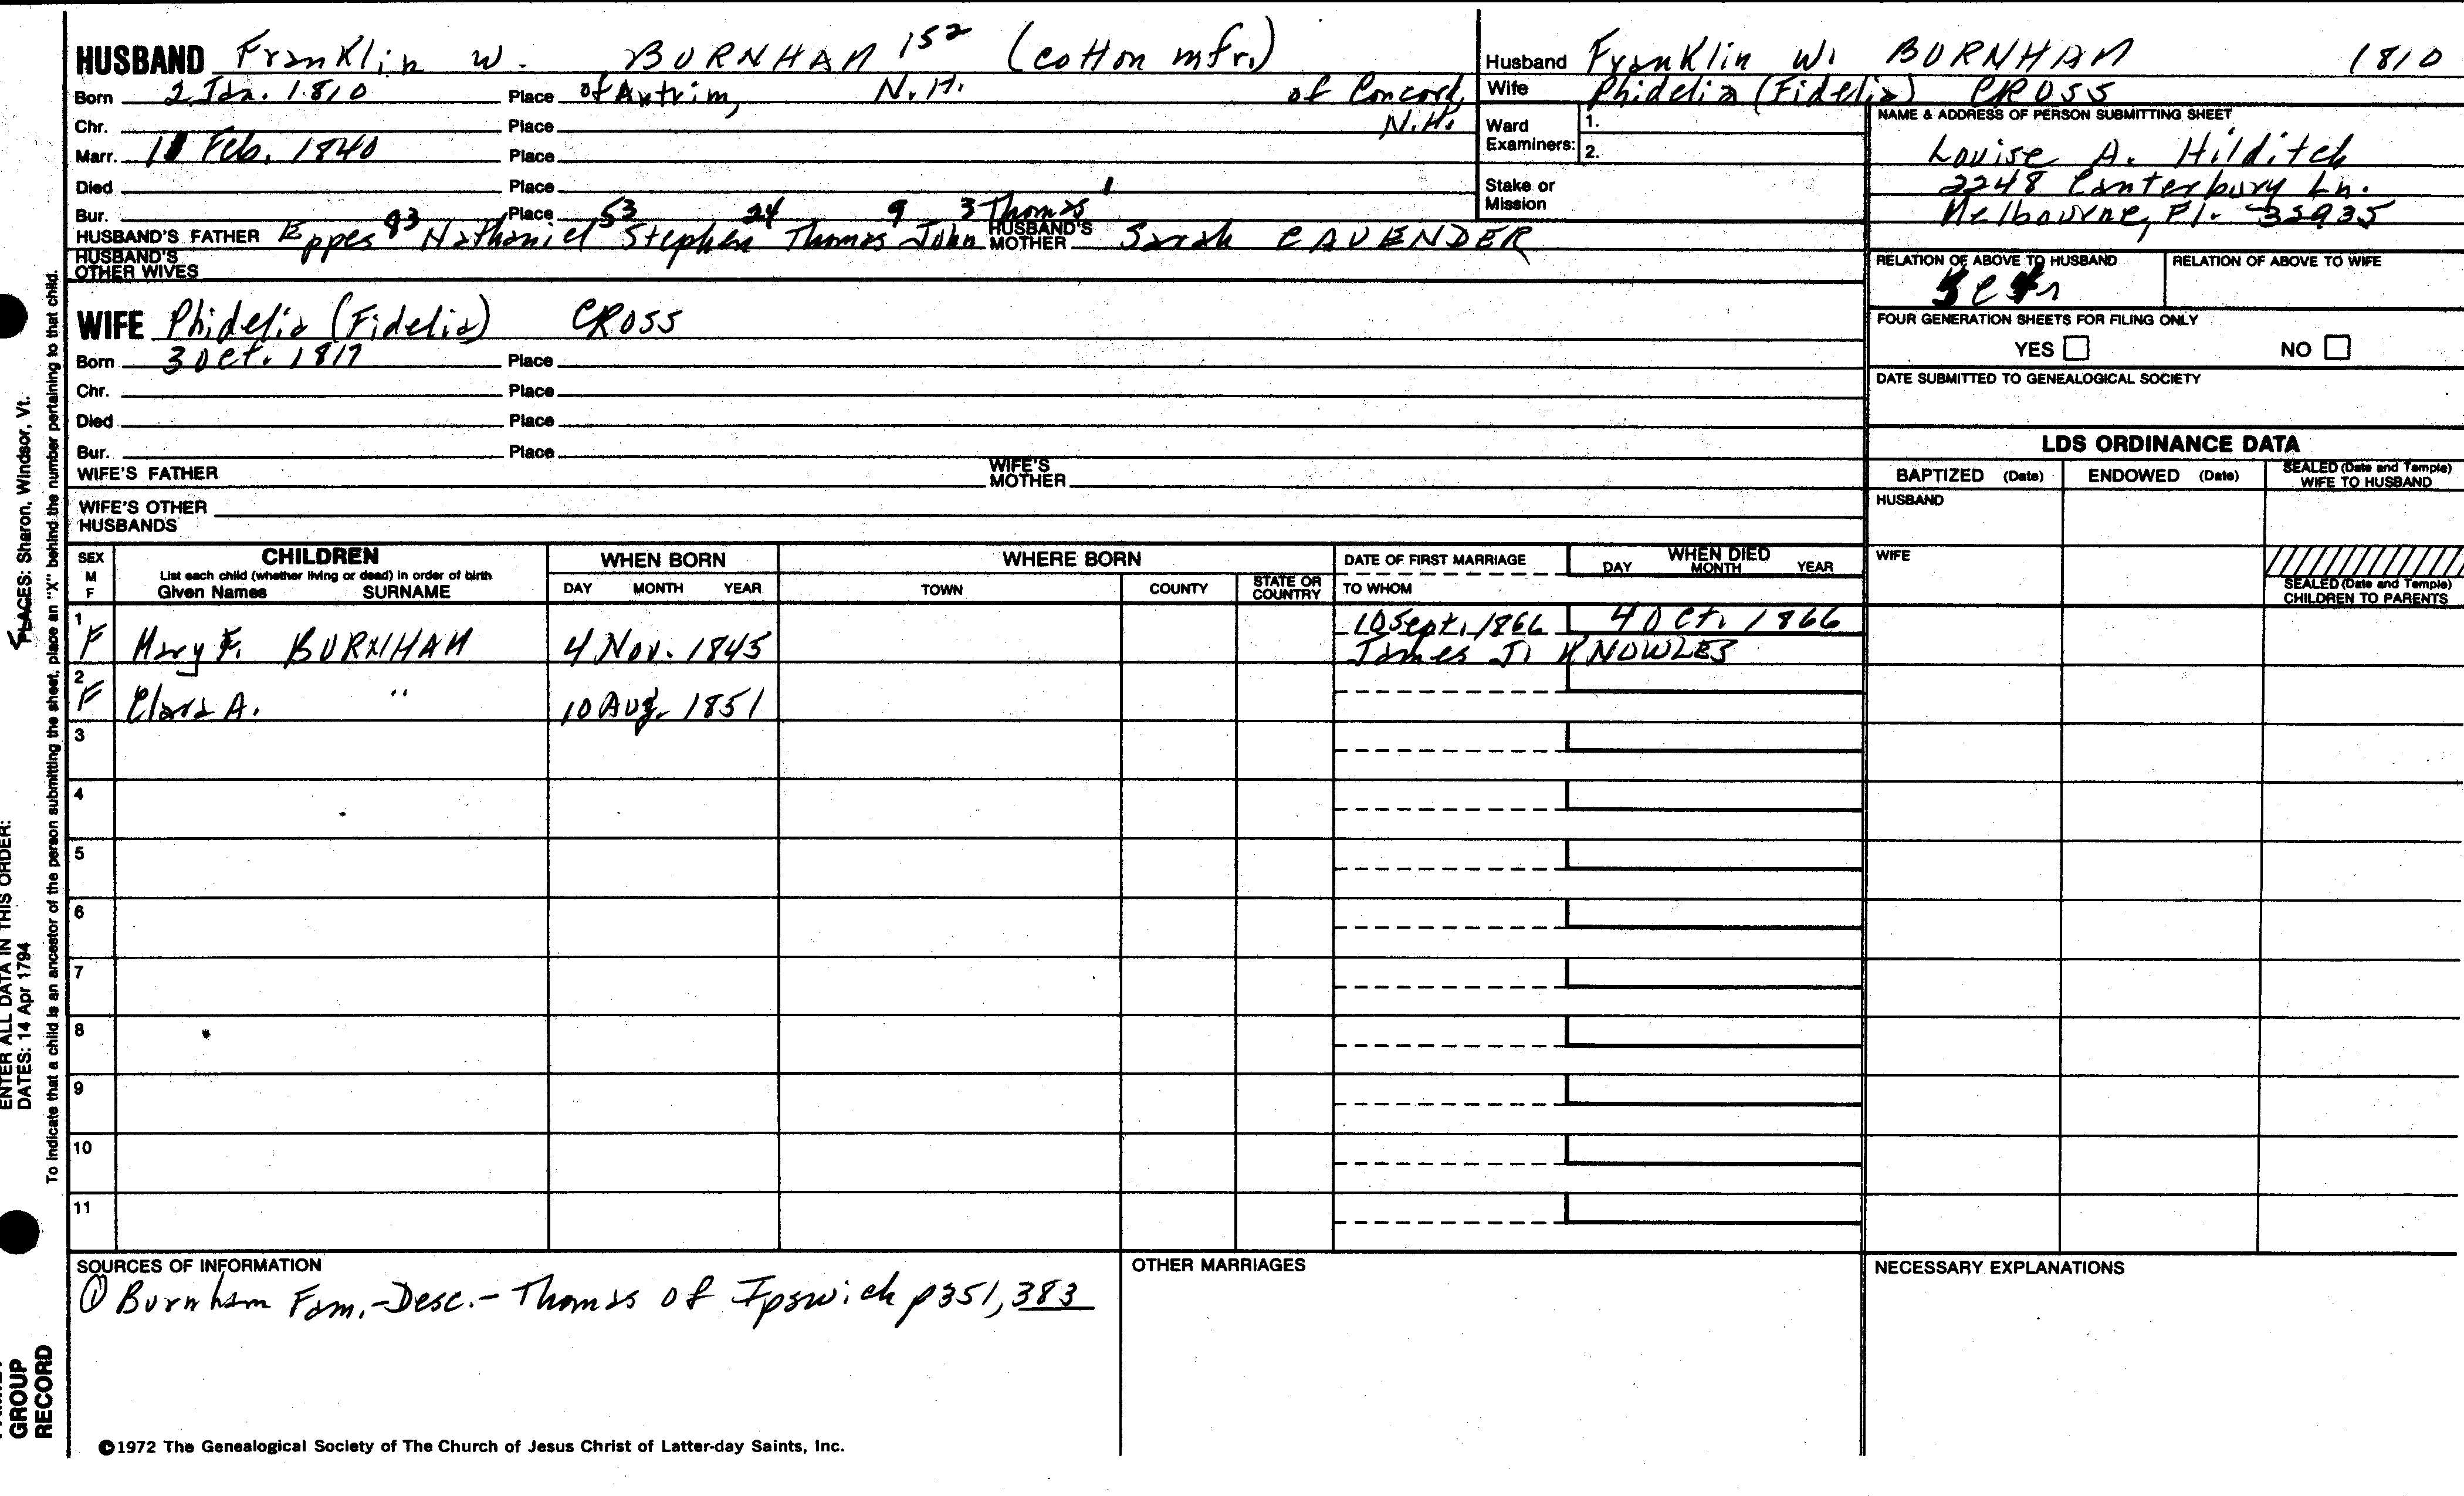 HUSBAND Franklin W. BURNHAM 152 (cotton mfr.)
Born 2 Jan. 1810 Place of Antrim, N.H. of Concord, N.H.
Chr. Place
Marr. 11 Feb. 1840 Place
Died Place
Bur. Place
HUSBAND'S FATHER Eppes 93 Nathaniel 53 Stephen 24 Thomas 9 John 3 Thomas 1 HUSBAND'S MOTHER Sarah CAVENDER
HUSBAND'S OTHER WIVES
WIFE Phidelia (Fidelia) CROSS
Born 3 Oct. 1817 Place
Chr. Place
Died Place
Bur. Place
WIFE'S FATHER WIFE'S MOTHER
WIFE'S OTHER HUSBANDS
Husband Franklin W. BURNHAM 1810
Wife Phidelia (Fidelia) CROSS
Ward Examiners: 1.
2.
Stake or Mission
NAME & ADDRESS OF PERSON SUBMITTING SHEET
Louise A. Hilditch
2248 Canterbury Ln.
Melbourne, Fl. 32935
RELATION OF ABOVE TO HUSBAND RELATION OF ABOVE TO WIFE
FOUR GENERATION SHEETS FOR FILING ONLY
YES NO
DATE SUBMITTED TO GENEALOGICAL SOCIETY
LDS ORDINANCE DATA
BAPTIZED (Date) ENDOWED (Date) SEALED (Date and Temple) WIFE TO HUSBAND
HUSBAND
WIFE
SEALED (Date and Temple) CHILDREN TO PARENTS
SEX M F CHILDREN WHEN BORN WHERE BORN DATE OF FIRST MARRIAGE WHEN DIED
List each child (whether living or dead) in order of birth DAY MONTH YEAR
Given Names SURNAME DAY MONTH YEAR TOWN COUNTY STATE OR COUNTRY TO WHOM
1 F Mary F. BURNHAM 4 Nov. 1845 10 Sept. 1866 4 Oct. 1866
James J. KNOWLES
2 F Clara A. " 10 Aug. 1851
3
4
5
6
7
8
9
10
11
SOURCES OF INFORMATION
① Burnham Fam.-Desc.- Thomas of Ipswich p351, 383
OTHER MARRIAGES
NECESSARY EXPLANATIONS
©1972 The Genealogical Society of The Church of Jesus Christ of Latter-day Saints, Inc.
ENTER ALL DATA IN THIS ORDER:
DATES: 14 Apr 1794
PLACES: Sharon, Windsor, Vt.
To indicate that a child is an ancestor of the person submitting the sheet, place an "X" behind the number pertaining to that child.
GROUP
RECORD